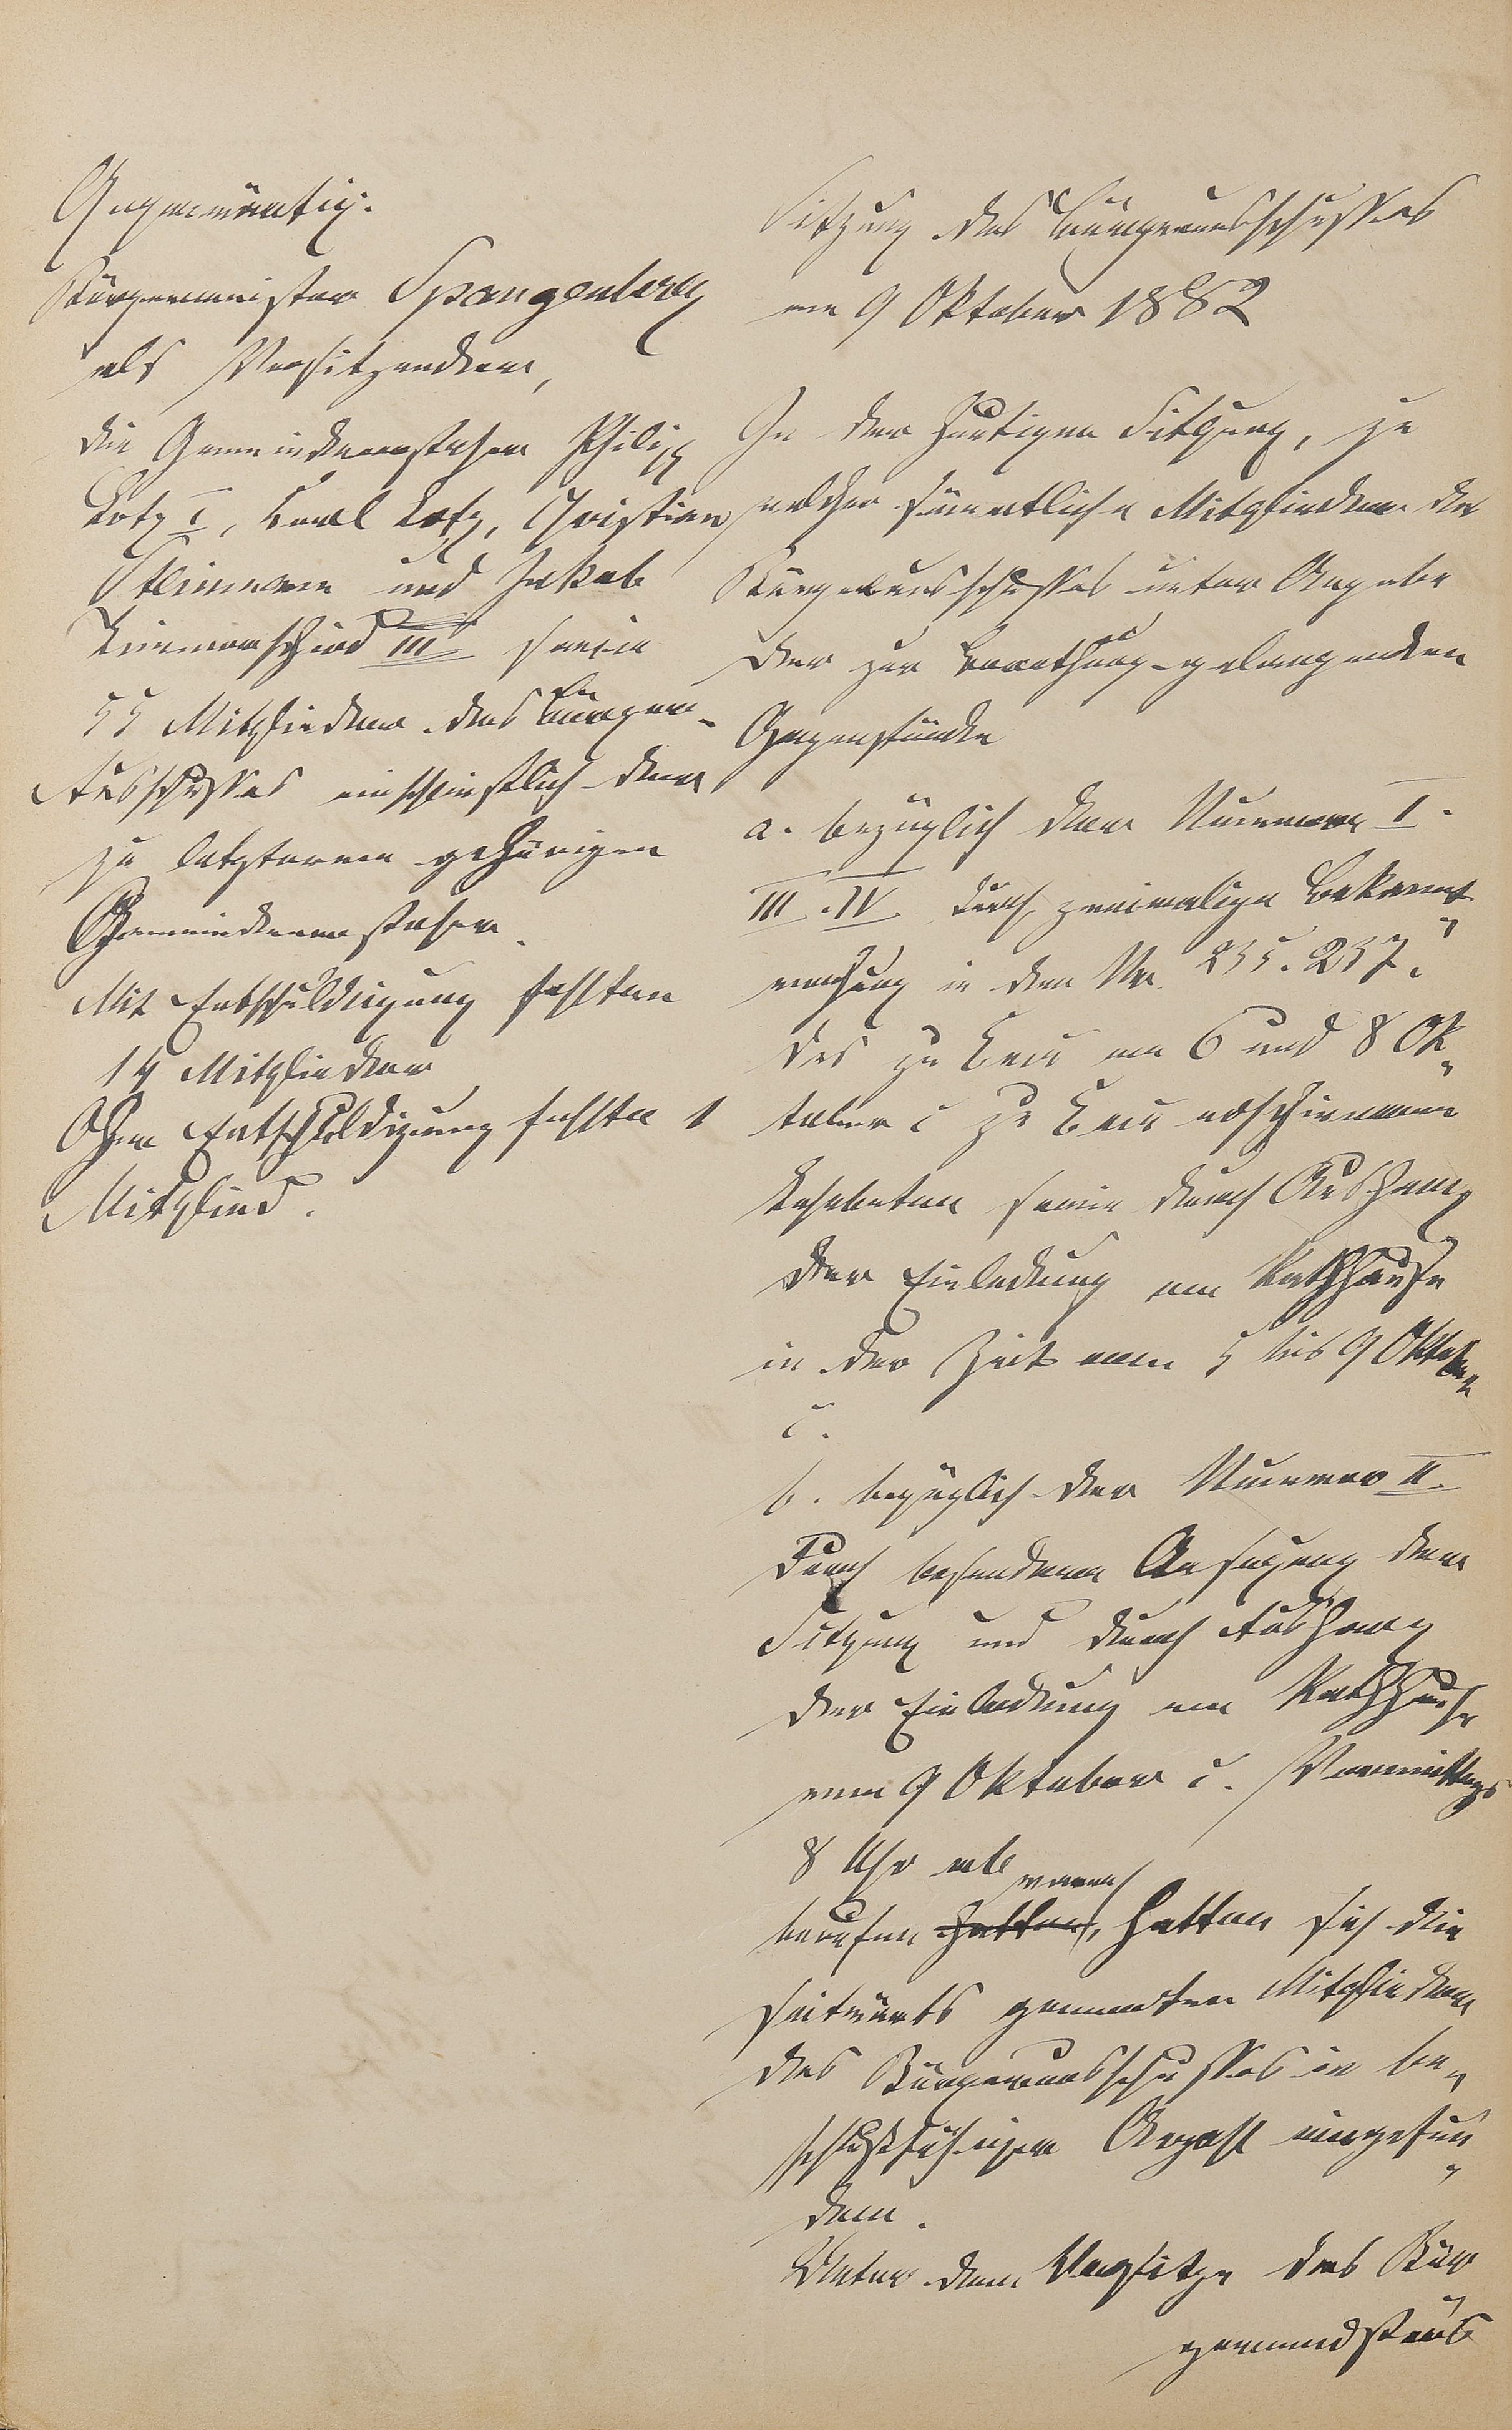 Gegenwärtig:
Bürgermeister Spangenberg
als Vorsitzender,
die Gemeindevorsteher Philipp
Lotz I, Karl Lotz, Christian
und Jakob
III sowie
55 Mitglieder des Bürger-
Ausschusses einschließlich der
zu letzterem gehörigen
Gemeindevorsteher.
Mit Entschuldigung fehlten
14 Mitglieder
Ohne Entschuldigung fehlte 1
Mitglied.
Sitzung des Bürgerausschusses
am 9 Oktober 1882
In der heutigen Sitzung, zu
welcher sämmtliche Mitglieder des
Bürgerausschusses unter Angabe
der zur Berathung gelangenden
Gegenstände
a. bezüglich der Nummer I.
III. IV. durch zweimalige Bekannt-
machung in den Nr. 235. 237.
des zu am 6 und 8 Ok-
tober c zu erschienenen
sowie durch Aushang
der Einladung am Rathhause
in der Zeit vom 5 bis 9 Oktober
c.
b. bezüglich der Nummer II.
Durch besondere Ansagung der
Sitzung und durch Aushang
der Einladung am Rathhause
vom 9 Oktober c. Vormittags
8 Uhr ab
waren
berufen hatten, hatten sich die
seitwärts genannten Mitglieder
des Bürgerausschusses in be-
schlußfähiger Anzahl eingefun-
den.
Unter dem Vorsitze des Bür-